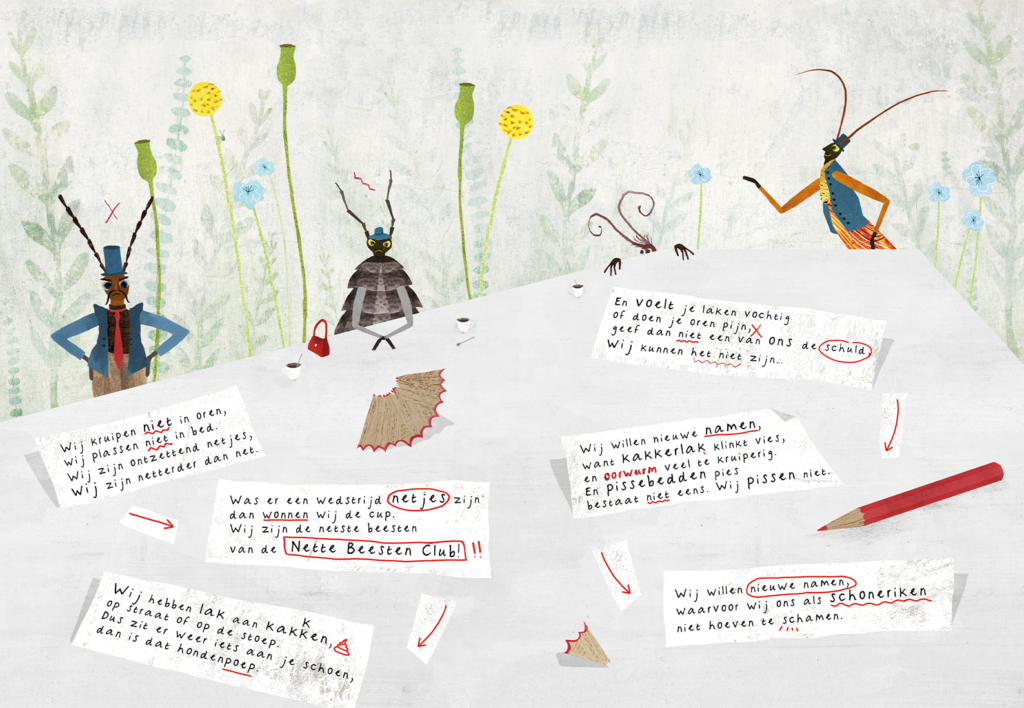 Wij kruipen niet in oren,
Wij plassen niet in bed.
Wij zijn ontzettend netjes,
Wij zijn netterder dan net.
Was er een wedstrijd netjes zijn
dan wonnen wij de cup.
Wij zijn de netste beesten
van de Nette Beesten Club! !!
Wij hebben lak aan kakken,
k
op straat of op de stoep.
Dus zit er weer iets aan je schoen,
dan is dat hondenpoep.
En voelt je laken vochtig
of doen je oren pijn,
geef dan niet een van ons de schuld.
Wij kunnen het niet zijn...
Wij willen nieuwe namen,
want kakkerlak klinkt vies,
en oorwurm veel te kruiperig.
En pissebedden pies
bestaat niet eens. Wij pissen niet.
Wij willen nieuwe namen,
waarvoor wij ons als schoneriken
niet hoeven te schamen.